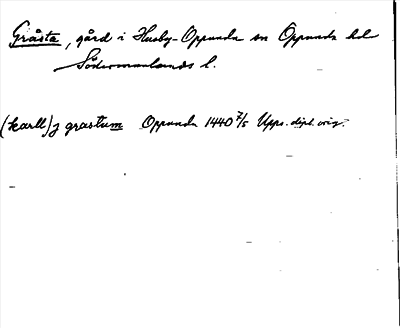 Gråsta, gård i Husby-Oppunda sn Oppunda hd
Södermanlands l.
(karll) j grastum Oppunda 1440 7/5 Upps. dipl. orig.